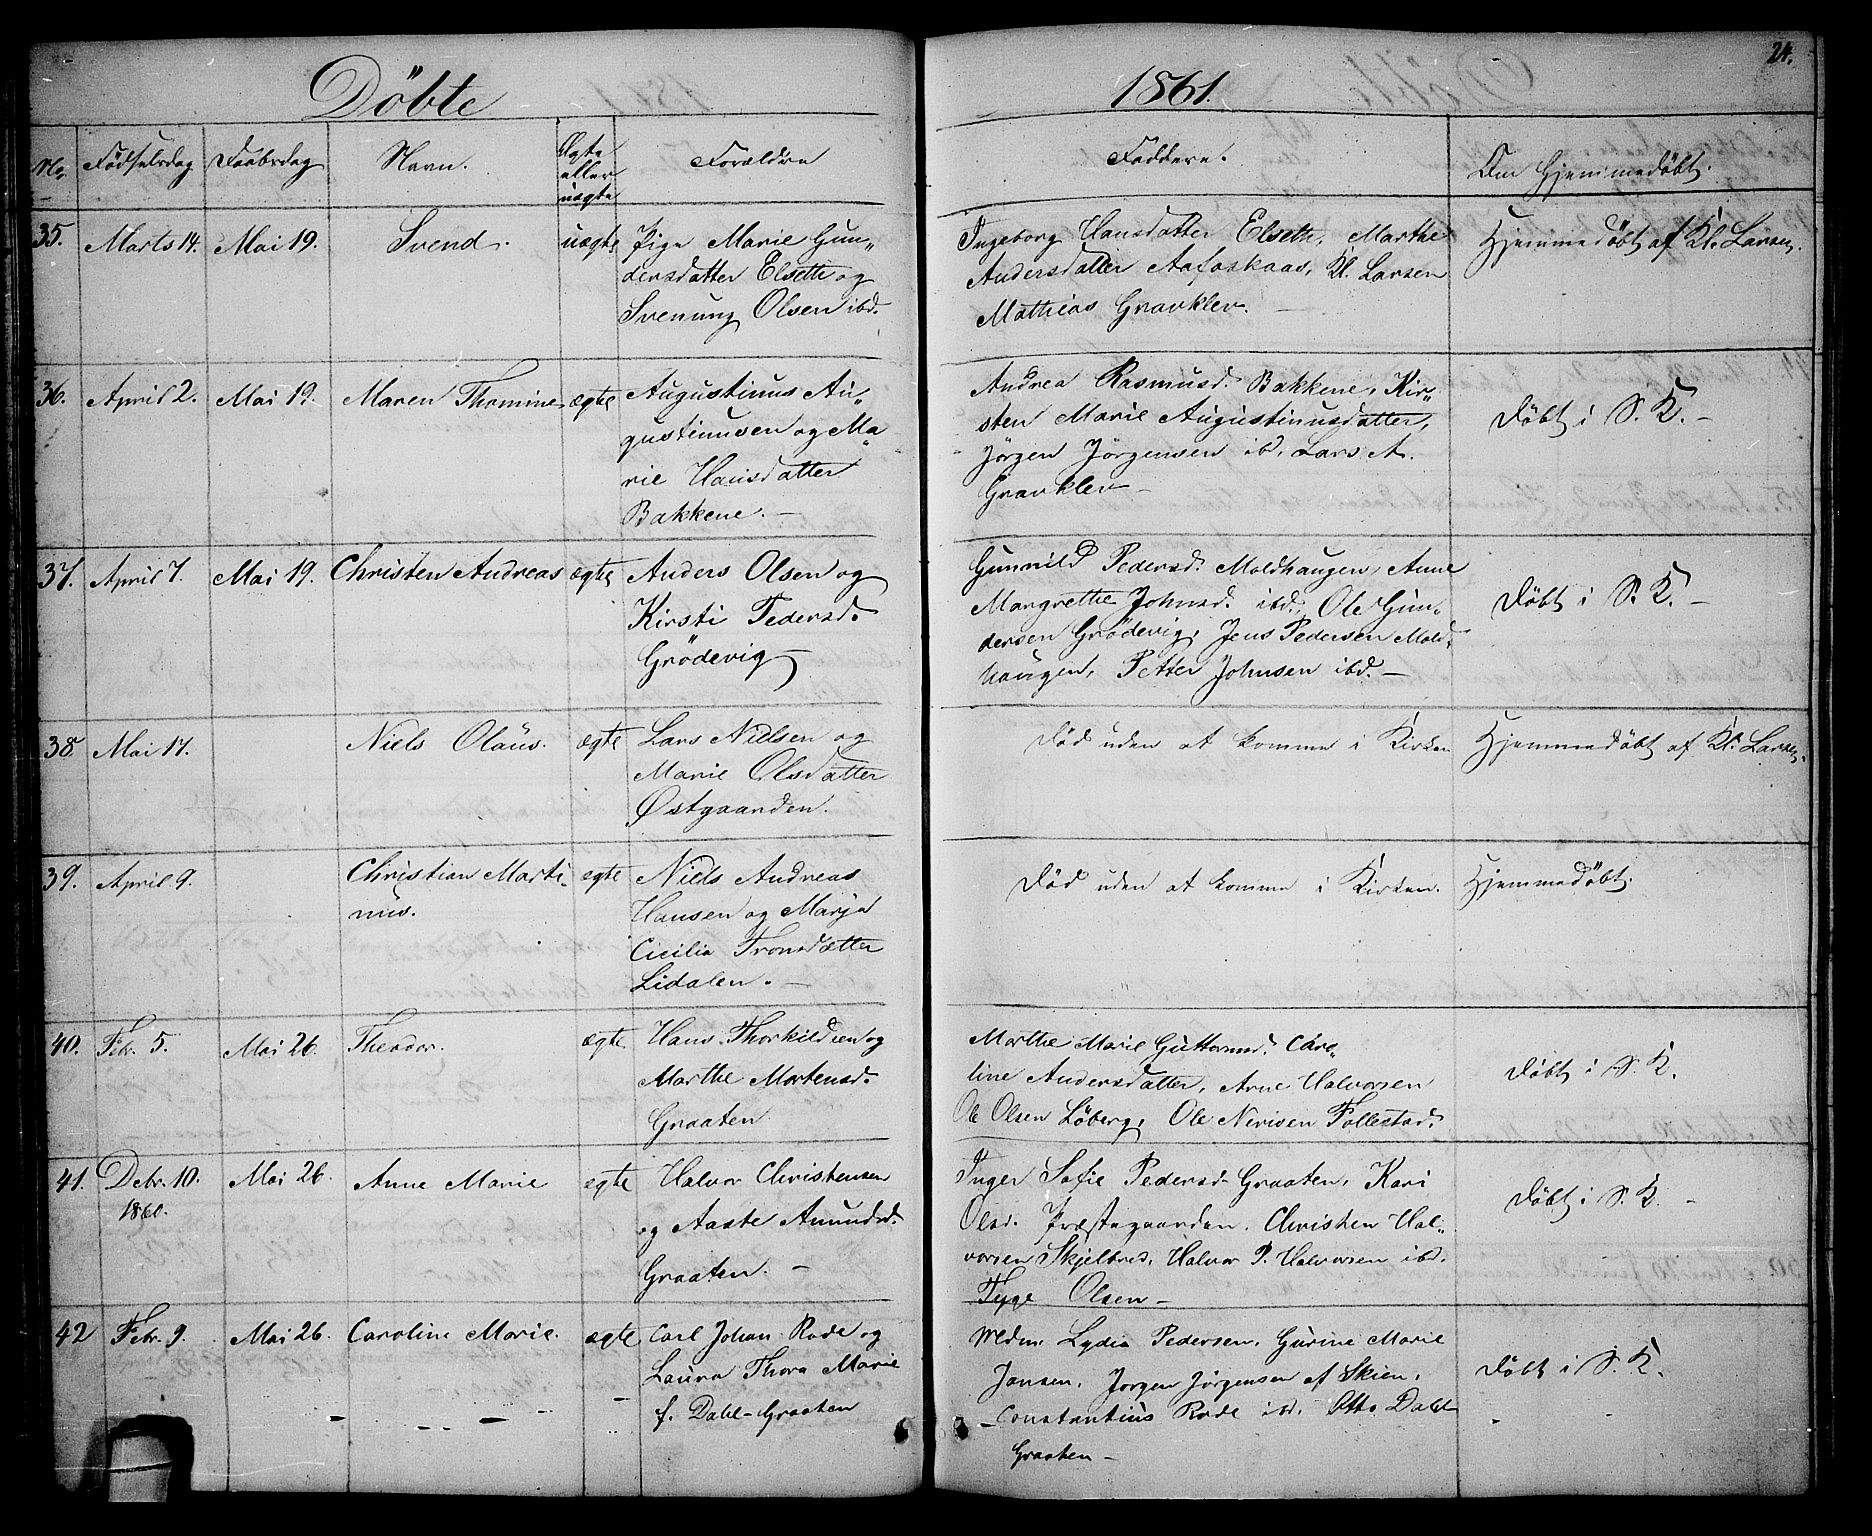 24.
Döbte
1861.
No Födselsdag Daabsdag Navn. Ægte eller uægte Forældre Faddere. Om Hjemmedöbt.
35. Marts 14. Mai 19. Svend. uægte Pige Marie Gun„
dersdatter Elseth og
Svenung Olsen ibd.
Ingeborg Hansdatter Elseth, Marthe
Andersdatter Aafoskaas, Kl. Larsen
Mathias Gravklev. —
Hjemmedöbt af Kl. Larsen.
36. April 2. Mai 19. Maren Thomine ægte Augustinus Au„
gustinusen og Ma„
rie Hansdatter
Bakkene. —
Andrea Rasmusd. Bakkene, Kir„
sten Marie Augustinusdatter,
Jörgen Jörgensen ibd, Lars A.
Gravklev —
Döbt i S. K. —
37. April 7. Mai 19. Christen Andreas ægte Anders Olsen og
Kirsti Pedersd.
Grödevig —
Gunnild Pedersd. Moldhaugen, Anne
Margrethe Johnsd. ibd., Ole Gun„
dersen Grödevig, Jens Pedersen Mold„
haugen, Petter Johnsen ibd. —
Döbt i S. K. —
38 Mai 17. Niels Olaus. ægte Lars Nielsen og
Marie Olsdatter
Østgaarden.
Död uden at komme i Kirken
Hjemmedöbt af Kl. Larsen.
39. April 9. Christian Marti„
nus.
ægte Niels Andreas
Hansen og Marja
Cicilia Tronsdatter
Lidalen. —
Död uden at komme i Kirken. Hjemmedöbt.
40. Febr. 5. Mai 26. Theodor. ægte Hans Thorkildsen og
Marthe Mortensd.
Graaten
Marthe Marie Guttormsd. Caro„
line Andersdatter, Arne Halvorsen
Ole Olsen Löberg, Ole Nirisen Follestad.
Döbt i S. K.
41. Debr. 10.
1860.
Mai 26. Anne Marie ægte Halvor Christensen
og Aaste Amundsd.
Graaten. —
Inger Sofie Pedersd. Graaten, Kari
Olsd. Præstegaarden. Christen Hal„
vorsen Skjelbred, Halvor P. Halvorsen ibd.
Tyge Olsen —
Döbt i S. K. —
42 Febr. 9. Mai 26. Caroline Marie. ægte Carl Johan Rode og
Laura Thora Marie
f. Dahl - Graaten
Mdm. Lydia Pedersen, Gurine Marie
Jansen, Jorgen Jörgensen af Skien,
Constantius Rode ibd. Otto Dahl
Graaten —
Döbt i S. K.